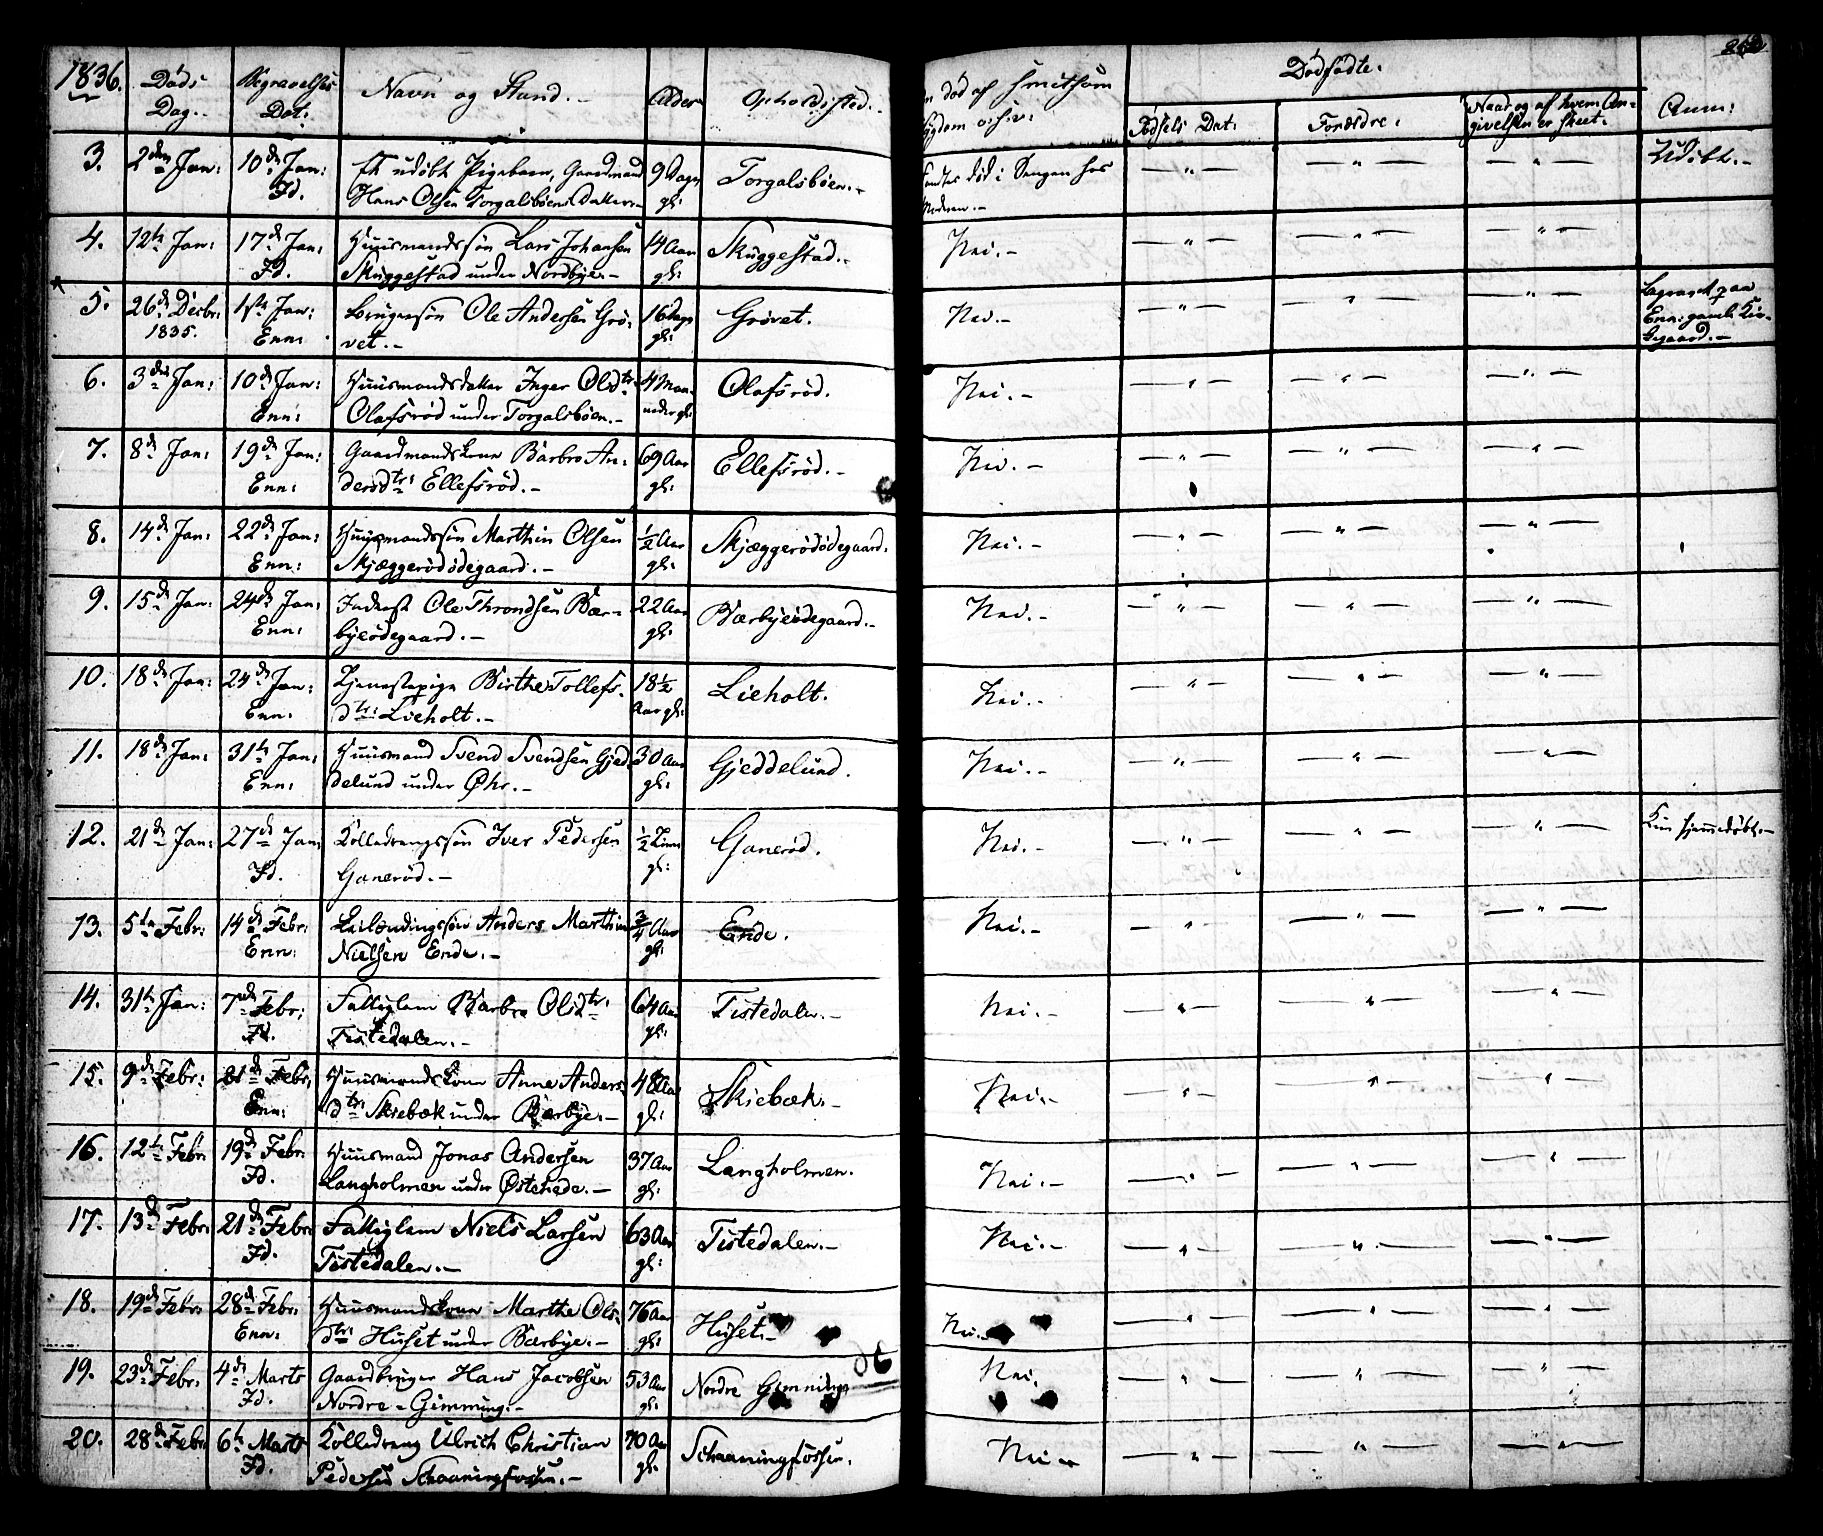 1836. Døds Dag. Begravelses Dat: Navn og Stand. Alder Opholdssted. død af smitsom Sygdom o:s:v: Dødfødte. Anm:
Fødsels Dat: Forældre. Naar og af hvem Angivelsen er skeet.
3. 2den Jan: 10de Jan: Et udøbt Pigebarn, Gaardmand 9 Dage Torgalsbøen. fandtes død i Sengen hos — " — — " — — " — Udøbt.
Fd. Hans Olsen Torgalsbøens Datter. gl: Moderen.
4. 12te Jan: 17de Jan: Huusmandssøn Lars Johansen 14 Aar Skuggestad. Nei. — " — — " — — " —
Fd. Skuggestad under Nordbye. gl:
5. 26de Decbr: 1ste Jan: Brugersøn Ole Andersen Grø- 16 Dage Grøvet. Nei. — " — — " — — " — Begravet paa
1835. Enn: vet. gl: Enn: gamle Kir-
kegaard.
6. 3die Jan: 10de Jan: Huusmandsdatter Inger Olsdtr: 4 Maa- Olafsrød. Nei. — " — — " — — " —
Enn: Olafsrød under Torgalsbøen. neder gl:
7. 8de Jan: 19de Jan: Gaardmandskone Barbro An- 69 Aar Ellefsrød. Nei. — " — — " — — " —
Enn: dersdtr: Ellefsrød. gl:
8. 14de Jan: 22de Jan: Huusmandssøn Marthin Olsen ½ Aar Skjæggerødødegaard. Nei. — " — — " — — " —
Enn: Skjæggerødødegaard. gl:
9. 15de Jan: 24de Jan: Inderst Ole Throndsen Bær- 22 Aar Bærbyeødegaard. Nei. — " — — " — — " —
Enn: byeødegaard. gl:
10. 18de Jan: 24de Jan: Tjenestepige Birthe Tollefs- 18½ Lieholt. Nei. — " — — " — — " —
Enn: dtr: Lieholt. Aar gl:
11. 18de Jan: 31te Jan: Huusmand Svend Svendsen Gjed- 30 Aar Gjeddelund. Nei. — " — — " — — " —
Enn: delund under Øhr. gl:
12. 21de Jan: 27de Jan: Rolledrengssøn Iver Pedersen ½ Time Ganerød. Nei. — " — — " — — " — Kun hjemmedøbt.
Fd. Ganerød. gl:
13. 5te Febr: 14de Febr: Leilændingssøn Anders Marthin ¾ Aar Ende. Nei. — " — — " — — " —
Enn: Nielsen Ende. gl:
14. 31te Jan: 7de Febr: Fattiglem Barbro Olsdtr: 64 Aar Tistedalen. Nei. — " — — " — — " —
Fd. Tistedalen. gl:
15. 9de Febr: 21de Febr: Huusmandskone Anne Anders- 48 Aar Skiebæk. Nei. — " — — " — — " —
Enn: dtr: Skiebæk under Bærbye. gl:
16. 12te Febr: 19de Febr: Huusmand Jonas Andersen 37 Aar Langholmen. Nei. — " — — " — — " —
Fd. Langholmen under Østenede. gl:
17. 13de Febr: 21de Febr: Fattiglem Niels Larsen 63 Aar Tistedalen. Nei. — " — — " — — " —
Fd. Tistedalen. gl:
18. 19de Febr: 28de Febr: Huusmandskone Marthe Ols- 76 Aar Huset. Nei. — " — — " — — " —
Enn: dtr: Huset under Bærbye. gl:
19. 23de Febr: 4de Marts Gaardbruger Hans Jacobsen 53 Aar Nordre Gimming Nei. — " — — " — — " —
Fd. Nordre-Gimming. gl:
20. 28de Febr: 6te Marts Rolledreng Ulrich Christian 70 Aar Schaaningfossen. Nei — " — — " — — " —
Fd. Pedersen Schaaningfossen. gl: